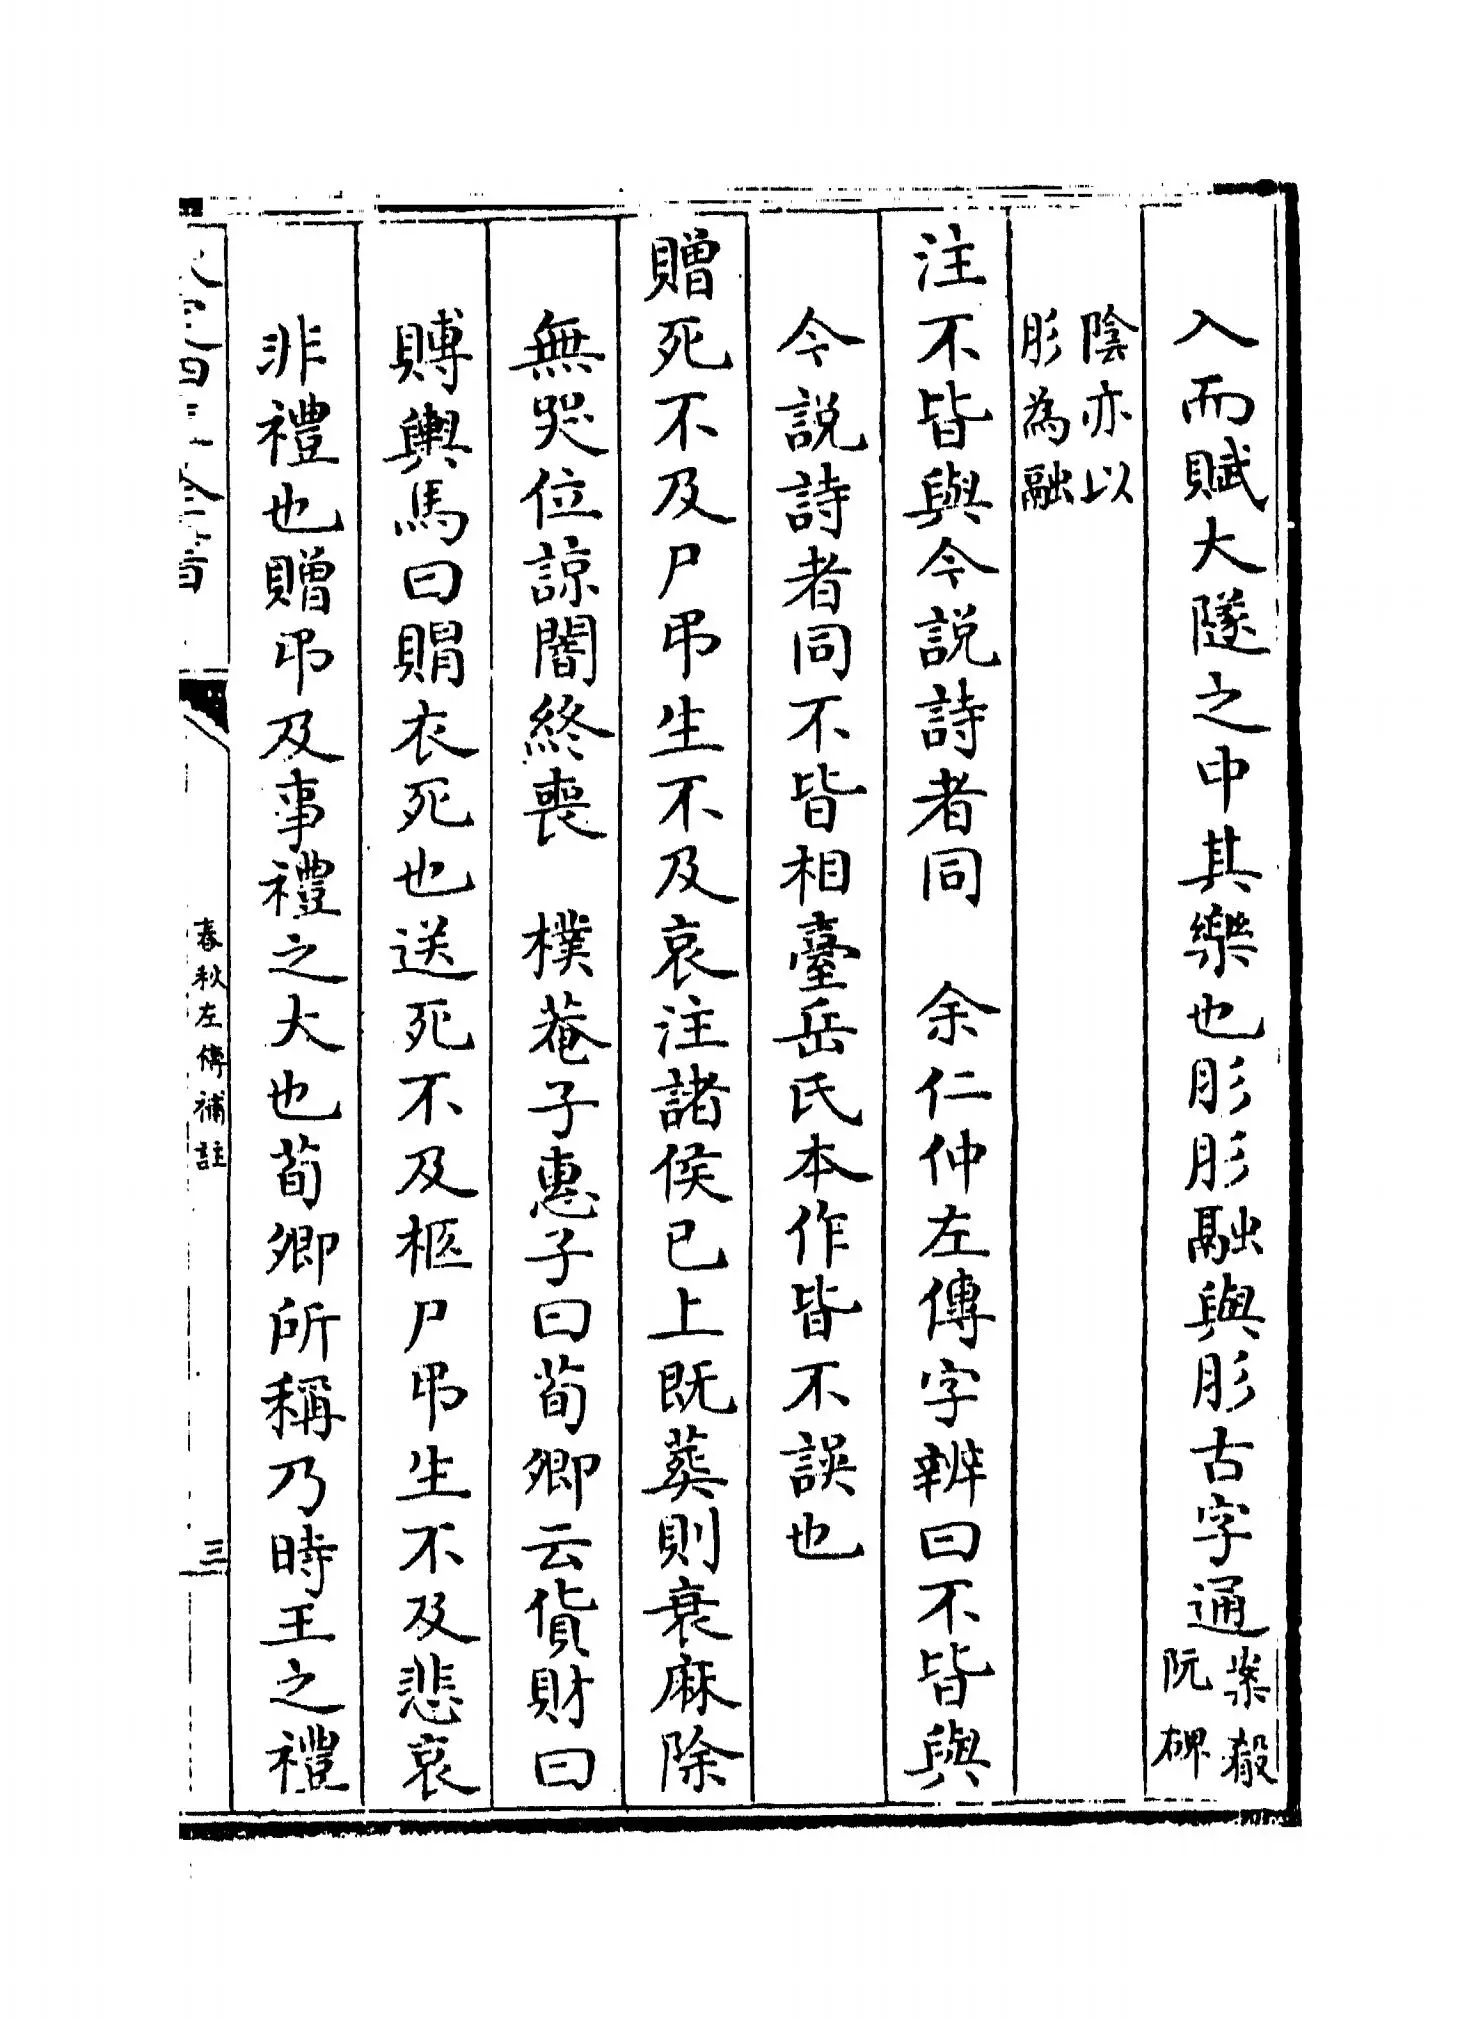 入而賦大隧之中其樂也肜肜融與肜古字通案殽阮碑
陰亦以肜為融
注不皆與今說詩者同　余仁仲左傳字辨曰不皆與
今說詩者同不皆相臺岳氏本作皆不誤也
贈死不及尸弔生不及哀注諸侯已上既葬則衰麻除
無哭位諒闇終喪　樸菴子惠子曰荀卿云貨財曰
賻輿馬曰賵衣死也送死不及柩尸弔生不及悲哀
非禮也贈弔及事禮之大也荀卿所稱乃時王之禮
春秋左傳補註
三